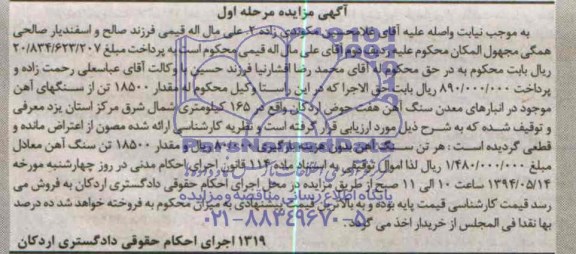 آگهی مزایده مرحله اول
به موجب نیابت واصله علیه آقای غلامحسین زاده ۲ـ علی مال اله قیمی فرزند صالح و اسفندیار صالحی
همگی مجهول المکان محکوم علیه ردیف دوم آقای علی مال اله قیمی محکوم است به پرداخت مبلغ ۲۰/۸۳۴/۶۲۳/۲۰۷
ریال بابت محکوم به در حق محکوم له آقای محمد رضا افشارنیا فرزند حسین با وکالت آقای عباسعلی رحمت زاده و
پرداخت ۸۹۰/۰۰۰/۰۰۰ ریال بابت حق الاجرا که در این راستا وکیل محکوم له مقدار ۱۸۵۰۰ تن از سنگهای آهن
موجود در انبارهای معدن سنگ آهن هفت حوض اردکان واقع در ۱۶۵ کیلومتری شمال شرق مرکز استان یزد معرفی
و توقیف شده که به شرح ذیل مورد ارزیابی قرار گرفته است و نظریه کارشناسی ارائه شده مصون از اعتراض مانده و
قطعی گردیده است : هر تن سنگ آهن بدون هزینه بارگیری ریال و مقدار ۱۸۵۰۰ تن سنگ آهن معادل
مبلغ ۱/۴۸۰/۰۰۰/۰۰۰ ریال لذا اموال توقیفی به استناد ماده ۱۱۴ قانون اجرای احکام مدنی در روز چهارشنبه مورخه
۱۳۹۴/۰۵/۱۴ ساعت ۱۰ الی ۱۱ صبح از طریق مزایده در محل اجرای احکام حقوقی دادگستری اردکان به فروش می
رسد قیمت کارشناسی قیمت پایه بوده و به بالاترین قیمت پیشنهادی به میزان محکوم به فروخته خواهد شد ده درصد
بها نقدا فی المجلس از خریدار اخذ می گردد.
پایگاه اطلاع رسانی مناقصه و مزایده
۰۲۱-۸۸۳۴۹۶۷۰-۵
۱۳۱۹ اجرای احکام حقوقی دادگستری اردکان